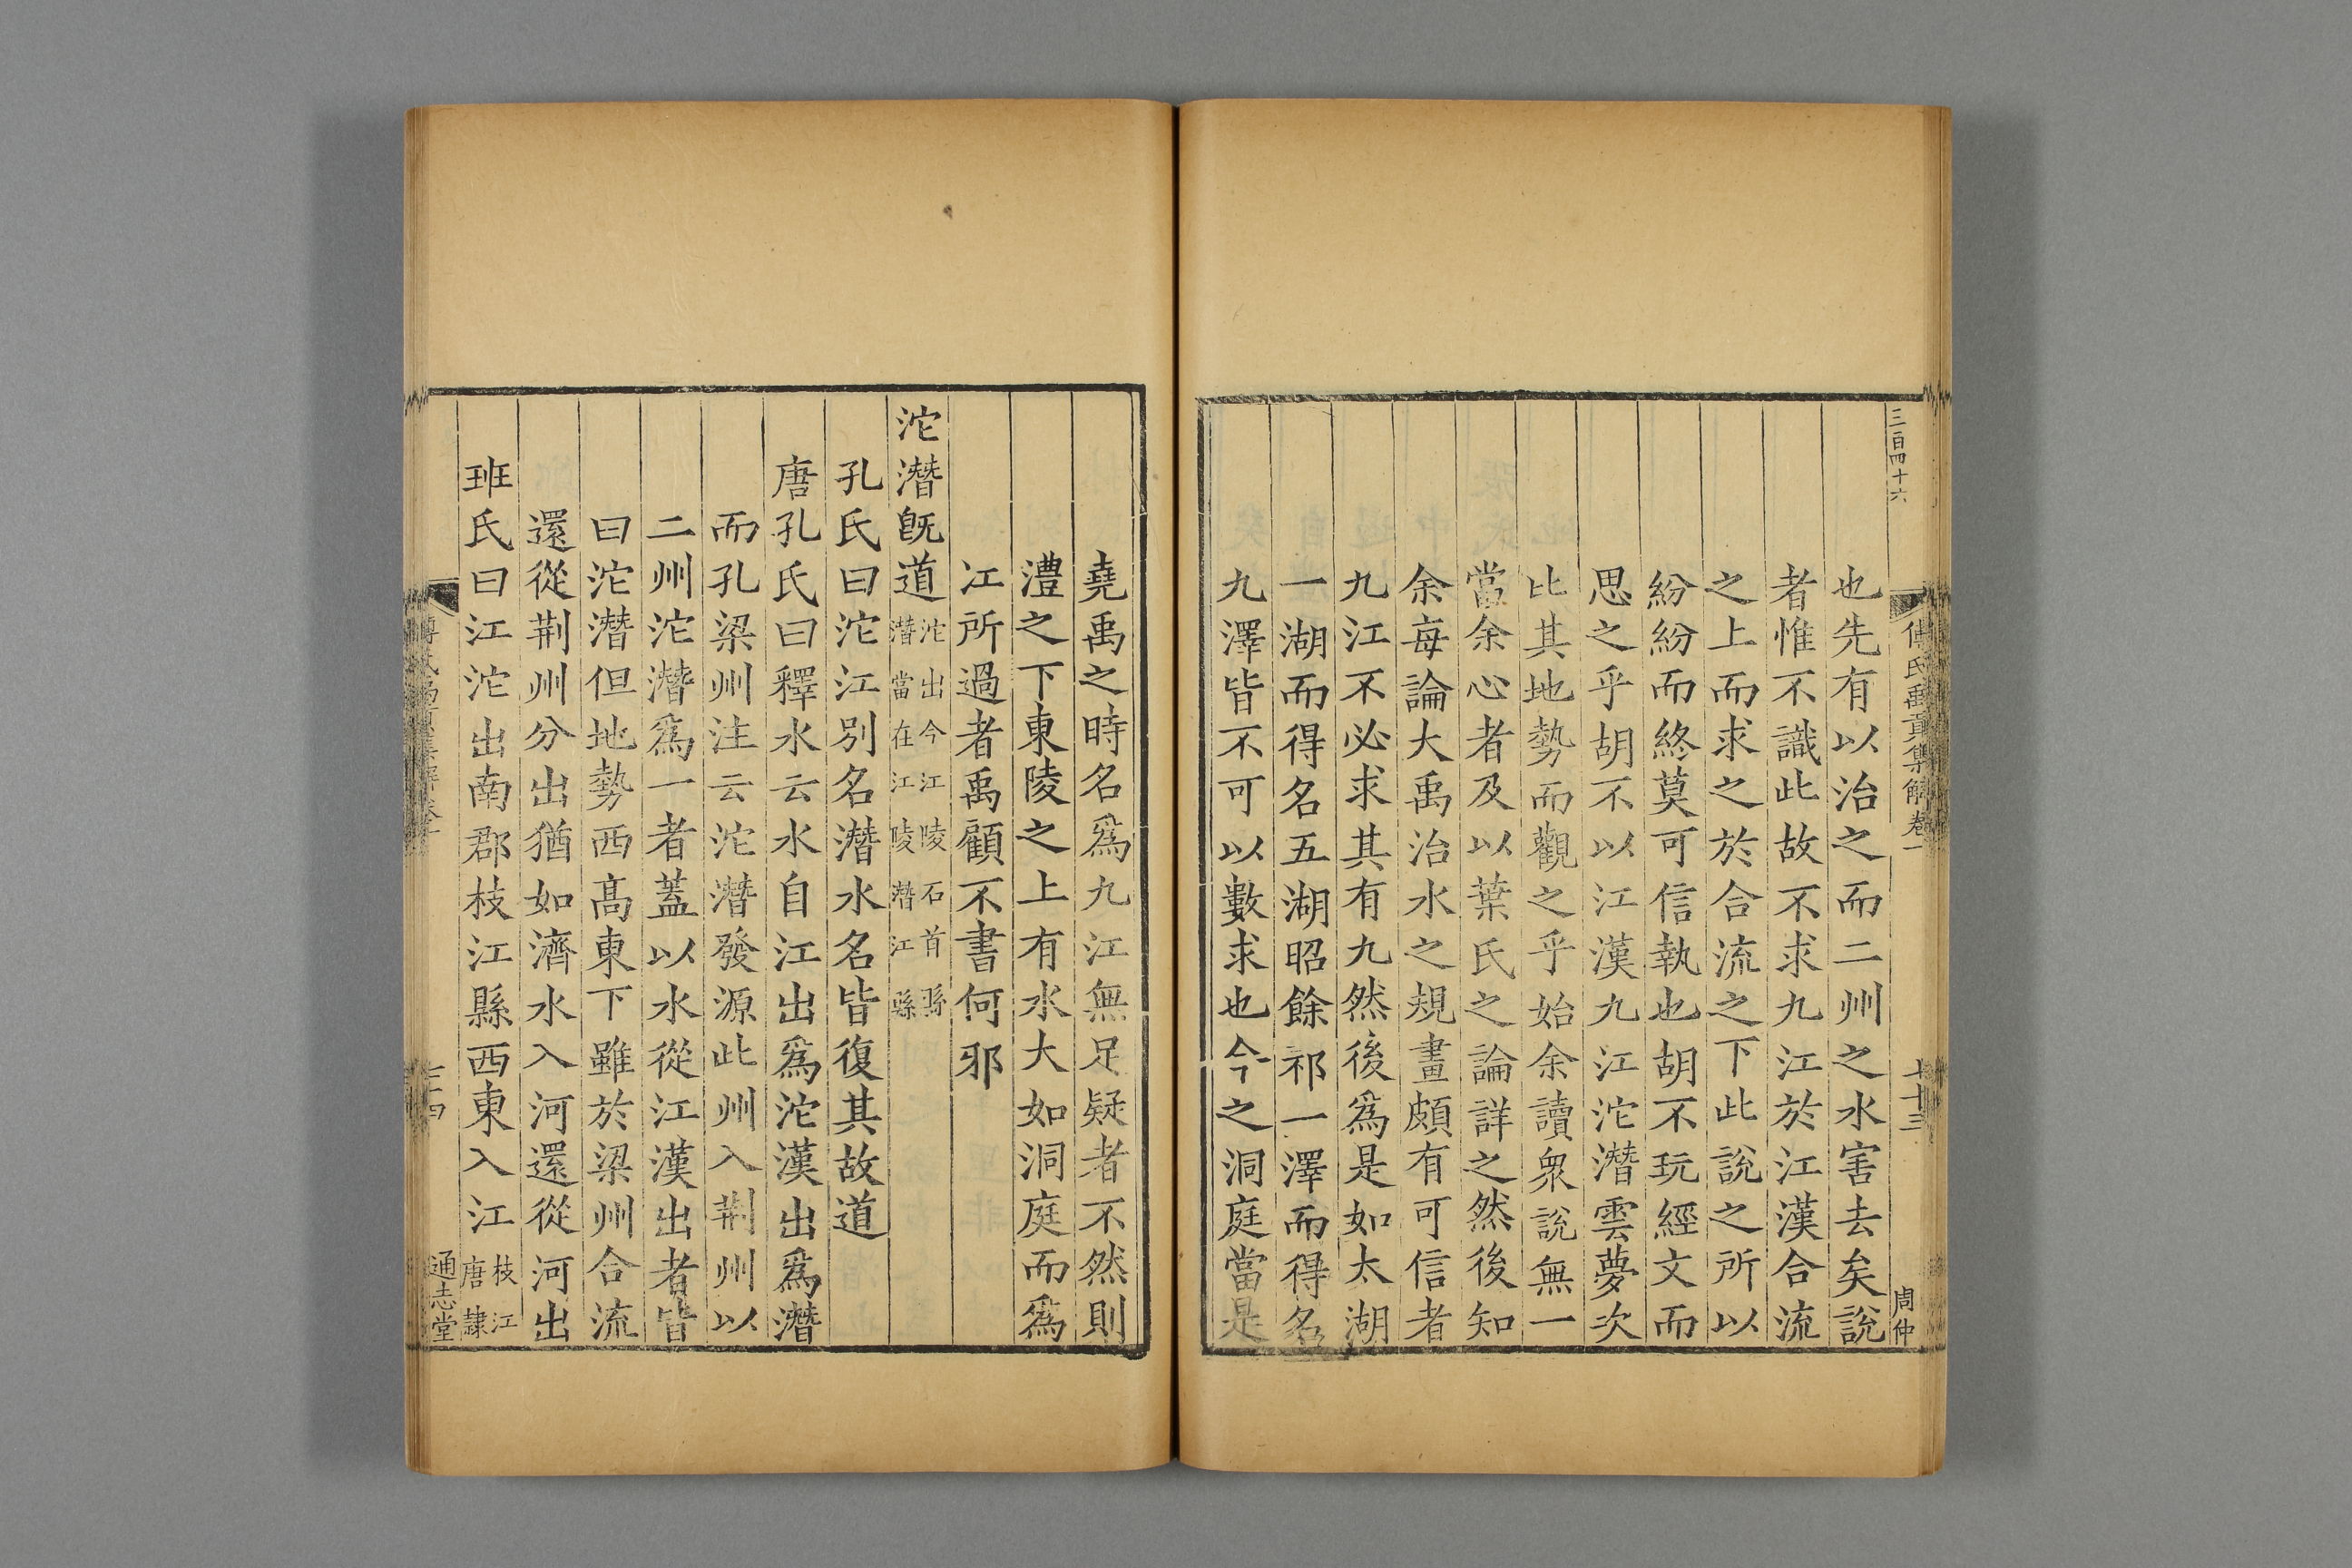 三百四十六
傅氏禹貢集解卷一
七十三
周仲
也先有以治之而二州之水害去矣說
者惟不識此故不求九江於江漢合流
之上而求之於合流之下此說之所以
紛紛而終莫可信執也胡不玩經文而
思之乎胡不以江漢九江沱潛雲夢次
比其地勢而觀之乎始余讀衆說無一
當余心者及以葉氏之論詳之然後知
余每論大禹治水之規畫頗有可信者
九江不必求其有九然後爲是如太湖
一湖而得名五湖昭餘祁一澤而得名
九澤皆不可以數求也今之洞庭當是
堯禹之時名爲九江無足疑者不然則
澧之下東陵之上有水大如洞庭而爲
江所過者禹顧不書何邪
沱潛旣道沱出今江陵石首縣
潛當在江陵潛江縣
孔氏曰沱江別名潛水名皆復其故道
唐孔氏曰釋水云水自江出爲沱漢出爲潛
而孔梁州注云沱潛發源此州入荆州以
二州沱潛爲一者蓋以水從江漢出者皆
曰沱潛但地勢西高東下雖於梁州合流
還從荆州分出猶如濟水入河還從河出
班氏曰江沱出南郡枝江縣西東入江枝江
唐隷
通志堂